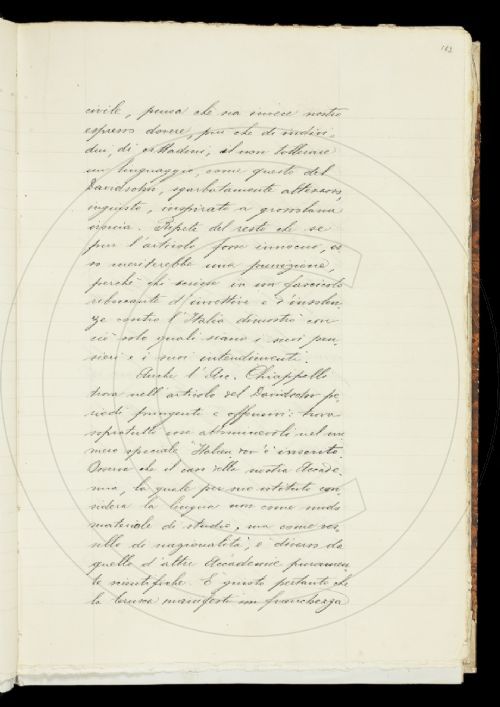 163
civile, pensa che sia invece nostro
espresso dovere, più che di indivi-
dui, di cittadini, il non tollerare
un linguaggio, come questo del
Davidsohn, sgarbatamente altezzoso,
ingiusto, inspirato a grossolana
ironia. Ripete del resto che se
pur l'articolo fosse innocuo, es-
so meriterebbe una punizione,
perchè chi scrisse in un fascicolo
riboccante d'invettive e d'insolen-
ze contro l'Italia dimostrò con
ciò solo quali siano i suoi pen-
sieri e i suoi intendimenti.
Anche l'Acc. Chiappelli
trova nell'articolo del Davidsohn pe-
riodi pungenti e offensivi: trova
sopratutto cose abominevoli nel nu-
mero speciale "Italien" ov'è inserito.
Osserva che il caso della nostra Accade-
mia, la quale per suo istituto con-
sidera la lingua non come nudo
materiale di studio, ma come ves-
sillo di nazionalità, è diverso da
quello d'altre Accademie puramen-
te scientifiche. È giusto pertanto che
la Crusca manifesti con franchezza